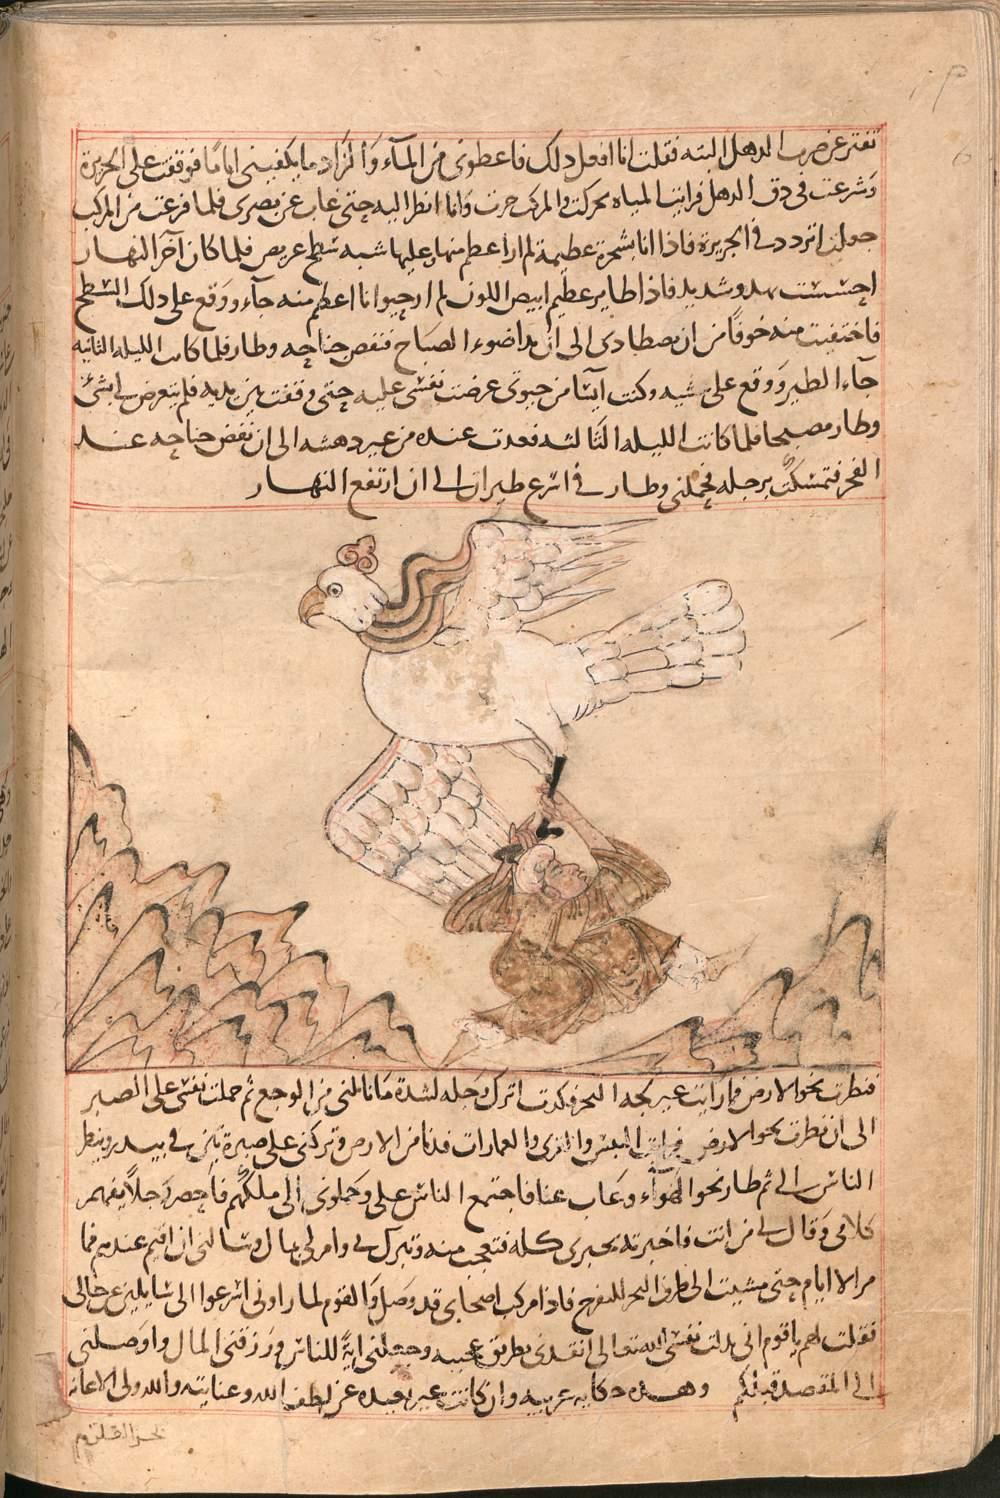 تفتر عن ضرب الدهل البته فقلت انا افعل ذلك فاعطونى من المآء والزاد ما يكفينى اياما فوقفت على الجزيرة
وشرعت فى دق الدهل فرايت المياه تحركت والمركب جرت وانا انظر اليه حتى غاب عن بصرى فلما فرغت من المركب
جعلت اتردد فى الجزيرة فاذا انا بشجرة عظيمة لم ار اعظم منها وعليها شبه سطح عريض فلما كان آخر النهار
احسست بهدو شديد فاذا طاير عظيم ابيض اللون لم ار حيوانا اعظم منه جآء ووقع على ذلك السطح
فاختفيت منه خوفا من ان يصطادى الى ان بدا ضوء الصباح فنفض جناحه وطار فلما كانت الليله الثانيه
جاء الطير ووقع على عشه وكنت آيسا من حيوتى عرضت نفسى عليه حتى وقفت بين يديه فلم يتعرض لى بشئ
وطار مصبحا فلما كانت الليله الثالثه قعدت عنده من غير دهشه الى ان نفض جناحه عند
الفجر فتمسكت برجله فحملنى وطار فى اسرع طيران الى ان ارتفع النهار
فنظرت نحو الارض فما رايت غير لجه البحر فكدت اترك رجله لشدة ما نالنى من الوجع ثم حملت نفسى على الصبر
الى ان نظرت نحو الارض فرايت القرى والعمارات فدنا من الارض وتركنى على صبرة تبن فى بيدر وينظر
الناس الى ثم طار نحو الهواء وغاب عنا فاجتمع الناس على وحملونى الى ملكهم فاحضر رجلا يفهم
كلامى وقال لى من انت فاخبرته بخبرى كله فتعجب منه وتبرك بى وامر لى بمال وسالنى ان اقيم عندهم فما
مر الا ايام حتى مشيت الى طرف البحر للتفرج فاذا مركب اصحابى قد وصل والقوم لما راونى اسرعوا الى سايلين عن حالى
فقلت لهم يا قوم انى بذلت نفسى لله تعالى انقذنى بطريق عجيبه وجعلنى اية للناس ورزقنى المال واوصلنى
الى المقصد قبلكم وهذه حكاية غريبه وان كانت غير بعيده عن لطف الله وعنايته والله ولى الاعانه
بحر القلزم